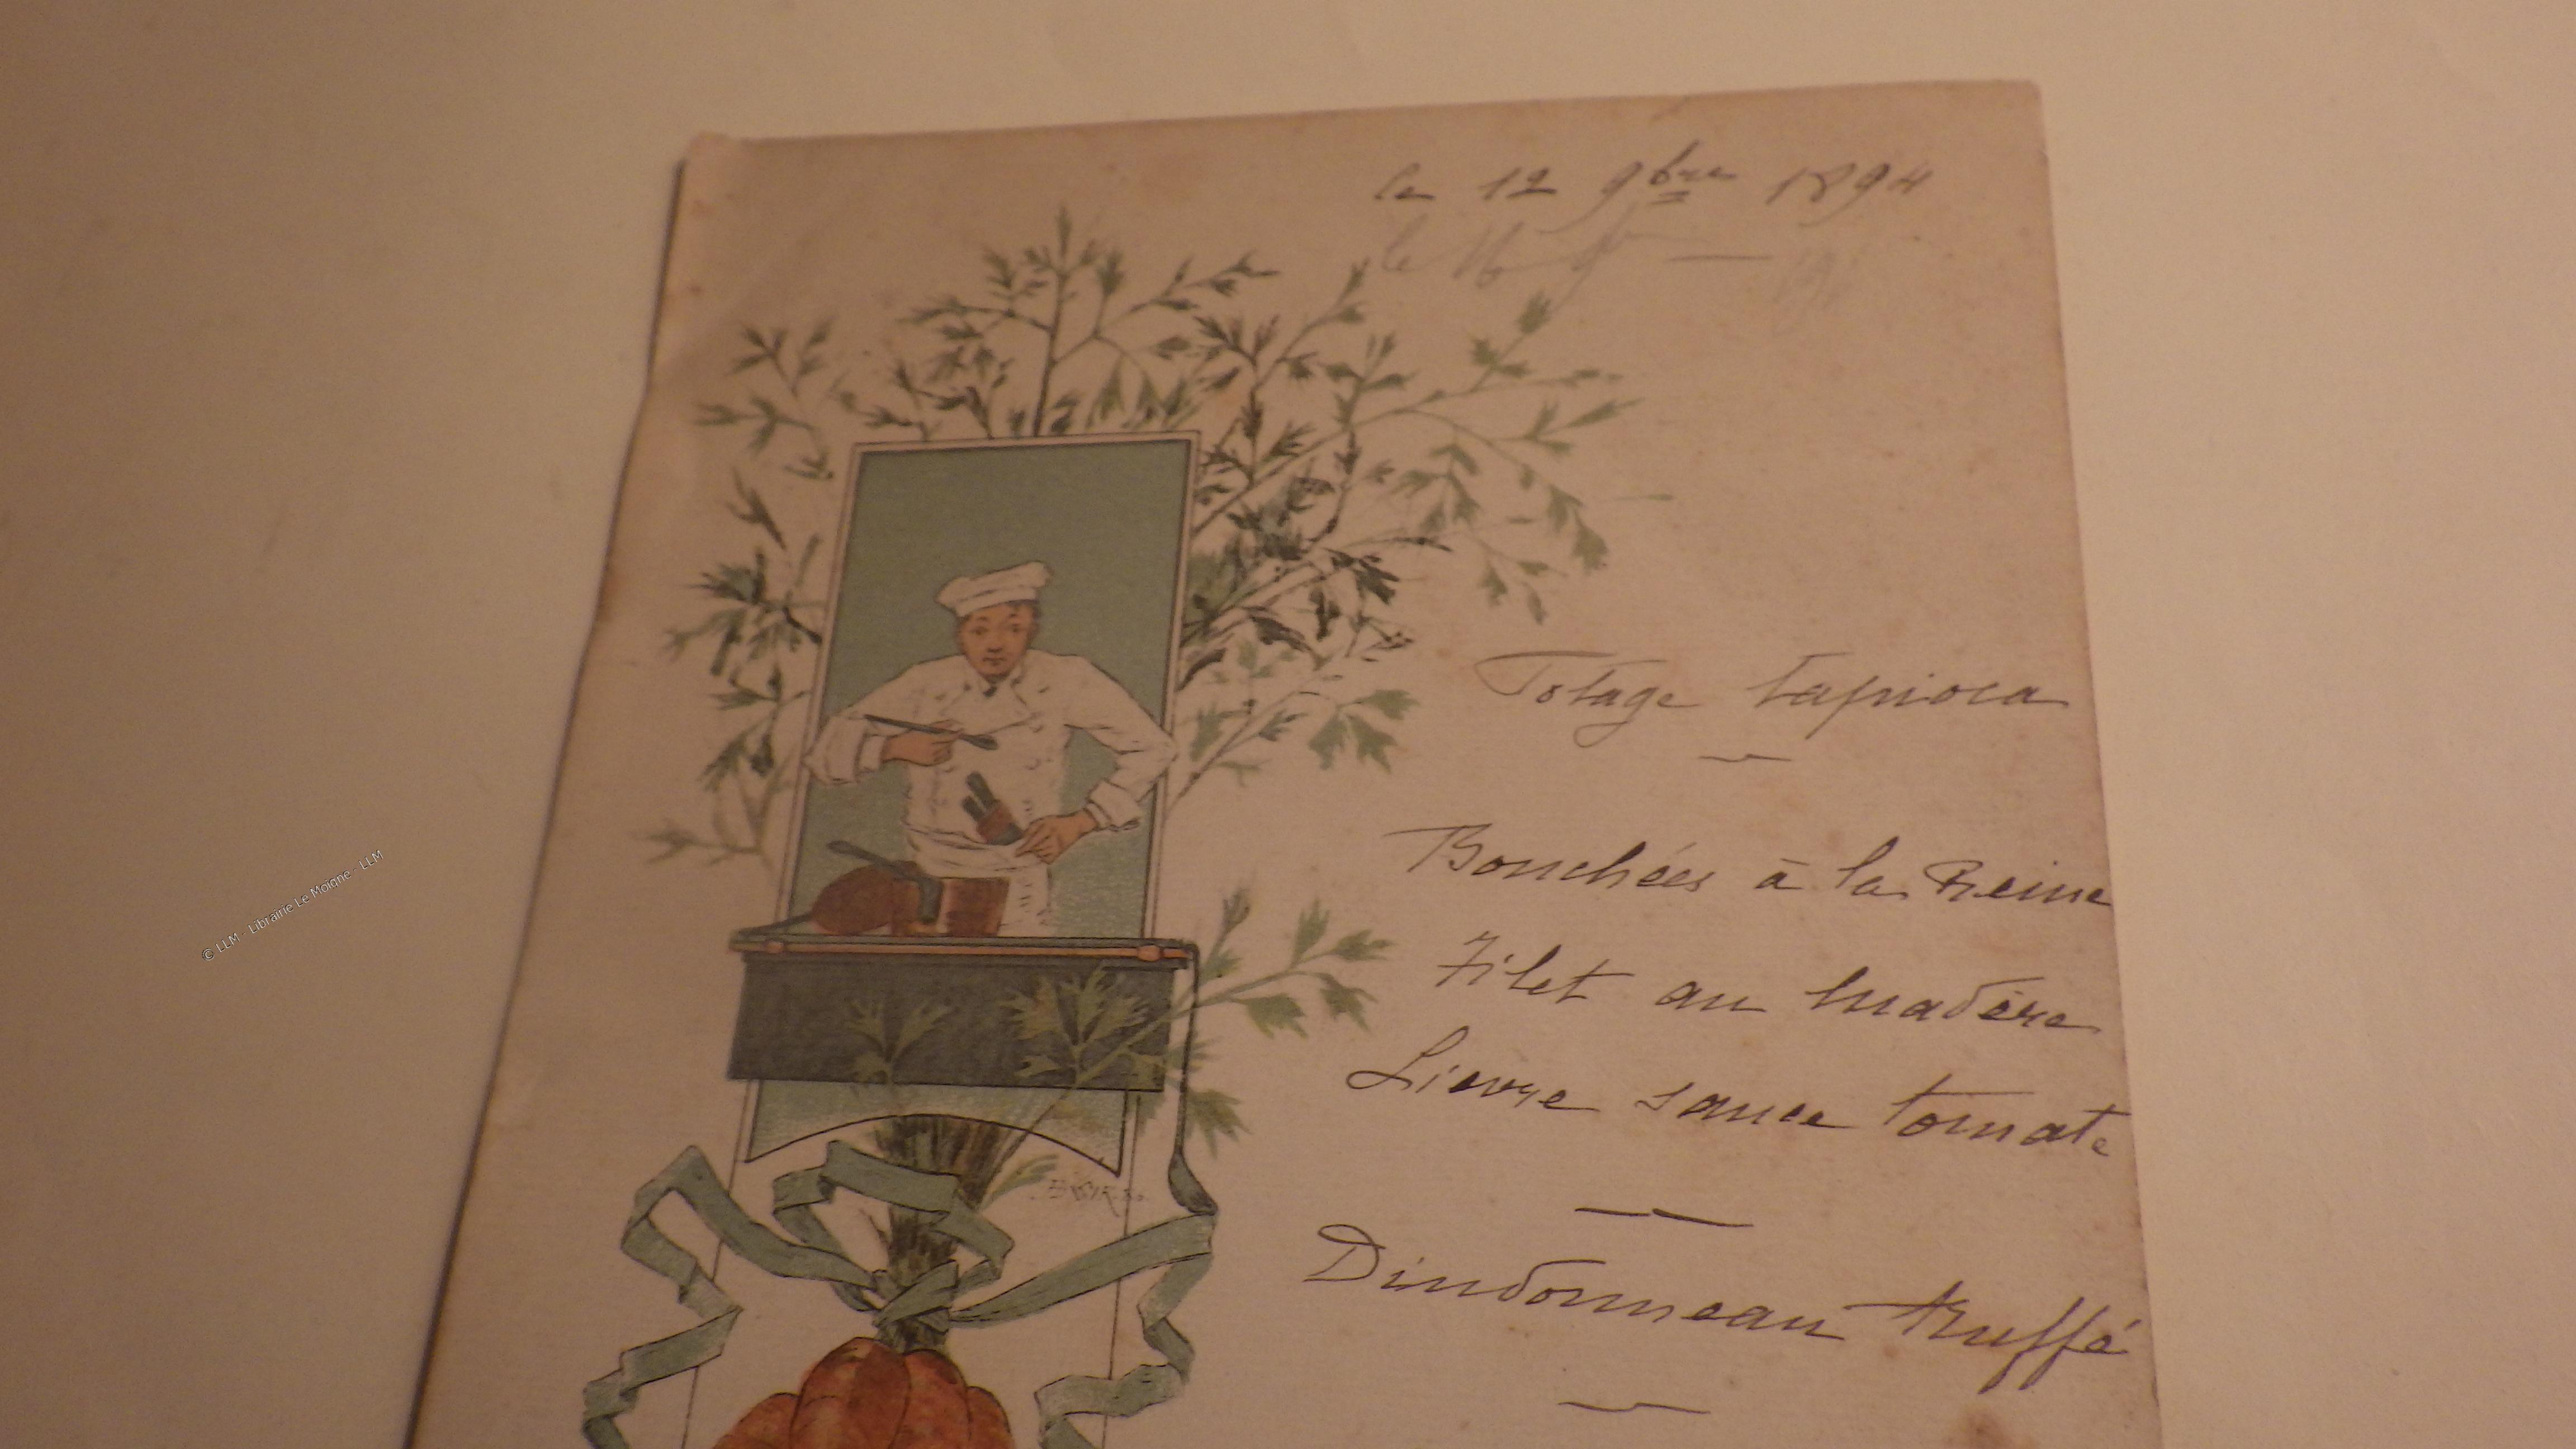 le 12 9bre 1894
Potage tapioca
Bouchées à la Reine
Filet au madère
Lievre sauce tomate
Dindonneau truffé
© LLM - Librairie Le Moigne - LLM